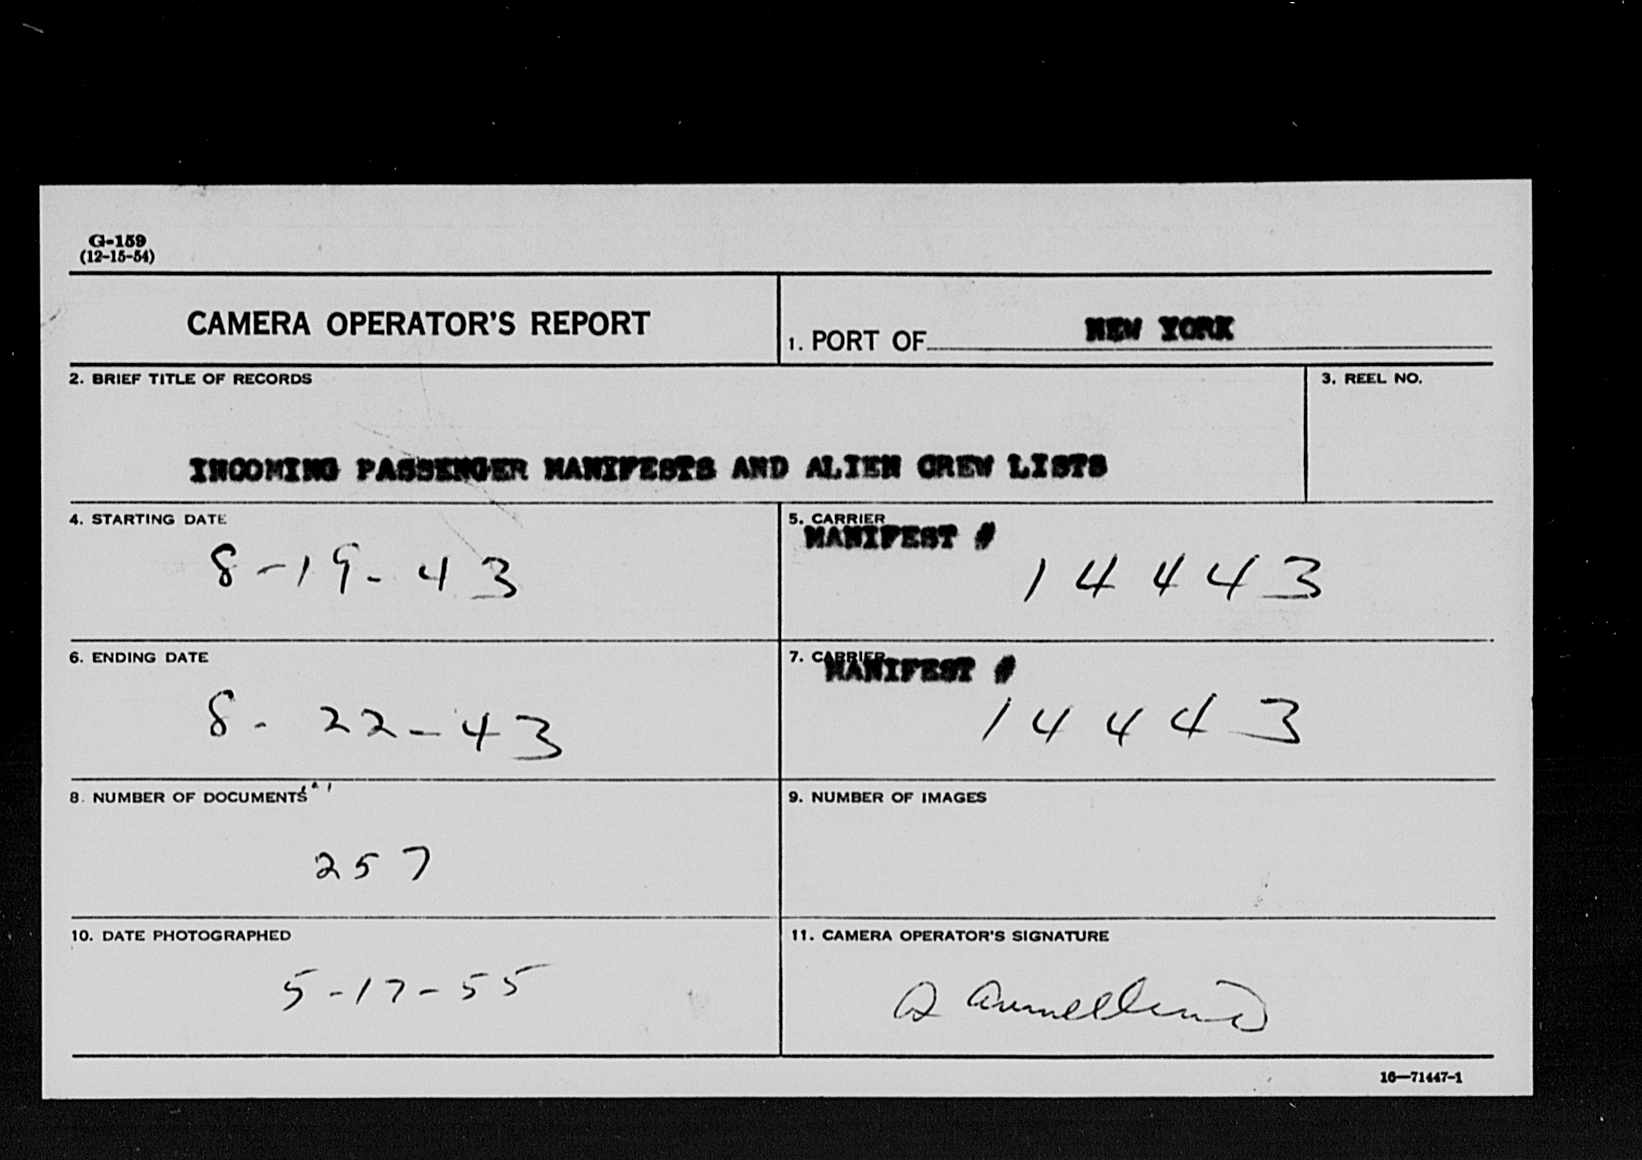 G-159
(12-15-54)
CAMERA OPERATOR'S REPORT
1. PORT OF NEW YORK
2. BRIEF TITLE OF RECORDS
3. REEL NO.
INCOMING PASSENGER MANIFESTS AND ALIEN CREW LISTS
4. STARTING DATE
8-19-43
5. CARRIER
MANIFEST #
14443
6. ENDING DATE
8-22-43
7. CARRIER
MANIFEST #
14443
8. NUMBER OF DOCUMENTS
257
9. NUMBER OF IMAGES
10. DATE PHOTOGRAPHED
5-17-55
11. CAMERA OPERATOR'S SIGNATURE
16—71447-1